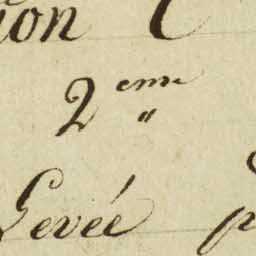 ion C
2eme "
Levée p